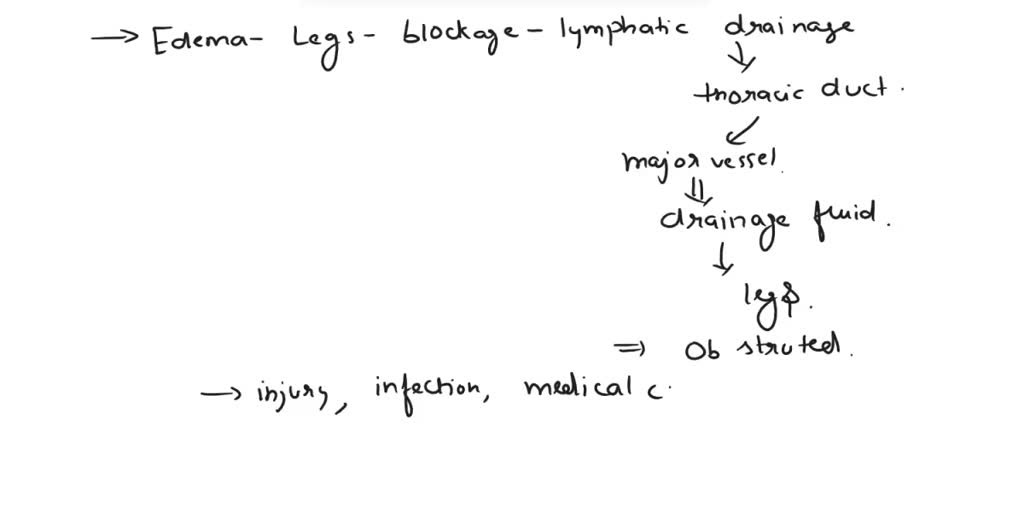 → Edema - Legs - blockage - lymphatic drainage
↓
thoracic duct.
↙
major vessel.
⇓
drainage fluid.
↓
legs.
⇒ Obstruted.
→ injury, infection, medical c.